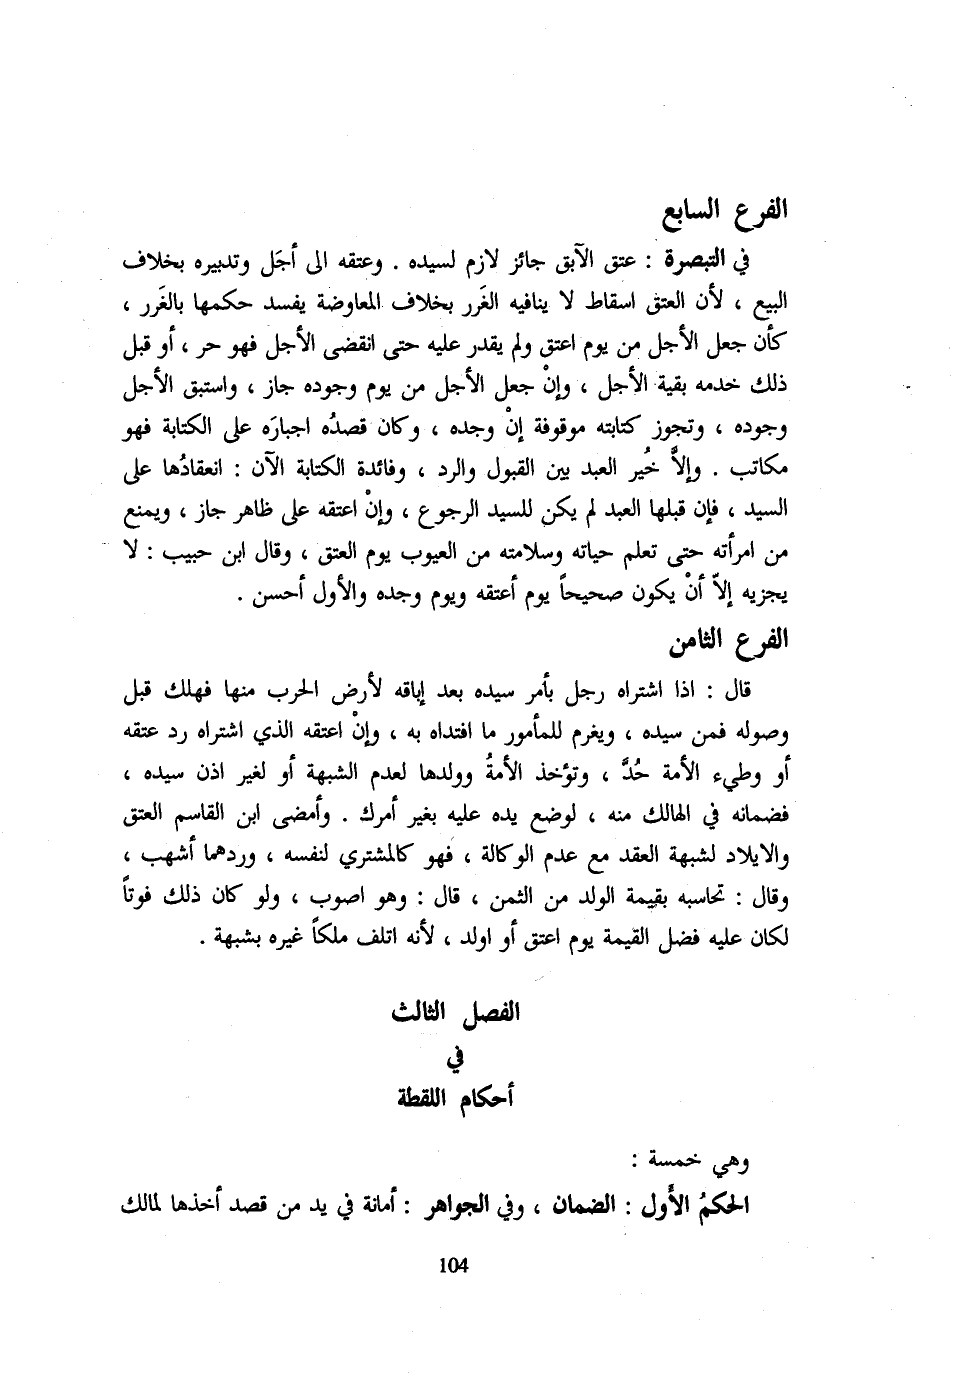 الفرع السابع
في التبصرة : عتق الآبق جائز لازم لسيده . وعتقه الى أجَل وتدبيره بخلاف
البيع ، لأن العتق اسقاط لا ينافيه الغَرر بخلاف المعاوضة يفسد حكمها بالغَرر ،
كأن جعل الأجل من يوم اعتق ولم يقدر عليه حتى انقضى الأجل فهو حر ، أو قبل
ذلك خدمه بقية الأجل ، وإنْ جعل الأجل من يوم وجوده جاز ، واستبق الأجل
وجوده ، وتجوز كتابته موقوفة إنْ وجده ، وكان قصدُه اجبارَه على الكتابة فهو
مكاتب . وإلاَّ خُير العبد بين القبول والرد ، وفائدة الكتابة الآن : انعقادُها على
السيد ، فإن قبلها العبد لم يكن للسيد الرجوع ، وإنْ اعتقه على ظاهر جاز ، ويمنع
من امرأته حتى تعلم حياته وسلامته من العيوب يوم العتق ، وقال ابن حبيب : لا
يجزيه إلاّ أنْ يكون صحيحاً يوم أعتقه ويوم وجده والأول أحسن .
الفرع الثامن
قال : اذا اشتراه رجل بأمر سيده بعد إباقه لأرض الحرب منها فهلك قبل
وصوله فمن سيده ، ويغرم للمأمور ما افتداه به ، وإنْ اعتقه الذي اشتراه رد عتقه
أو وطيء الأمة حُدَّ ، وتؤخذ الأمةُ وولدها لعدم الشبهة أو لغير اذن سيده ،
فضمانه في الهالك منه ، لوضع يده عليه بغير أمرك . وأمضى ابن القاسم العتق
والايلاد لشبهة العقد مع عدم الوكالة ، فهو كالمشتري لنفسه ، وردهما أشهب ،
وقال : تحاسبه بقيمة الولد من الثمن ، قال : وهو اصوب ، ولو كان ذلك فوتاً
لكان عليه فضل القيمة يوم اعتق أو اولد ، لأنه اتلف ملكاً غيره بشبهة .
الفصل الثالث
في
أحكام اللقطة
وهي خمسة :
الحكمُ الأول : الضمان ، وفي الجواهر : أمانة في يد من قصد أخذها لمالك
104